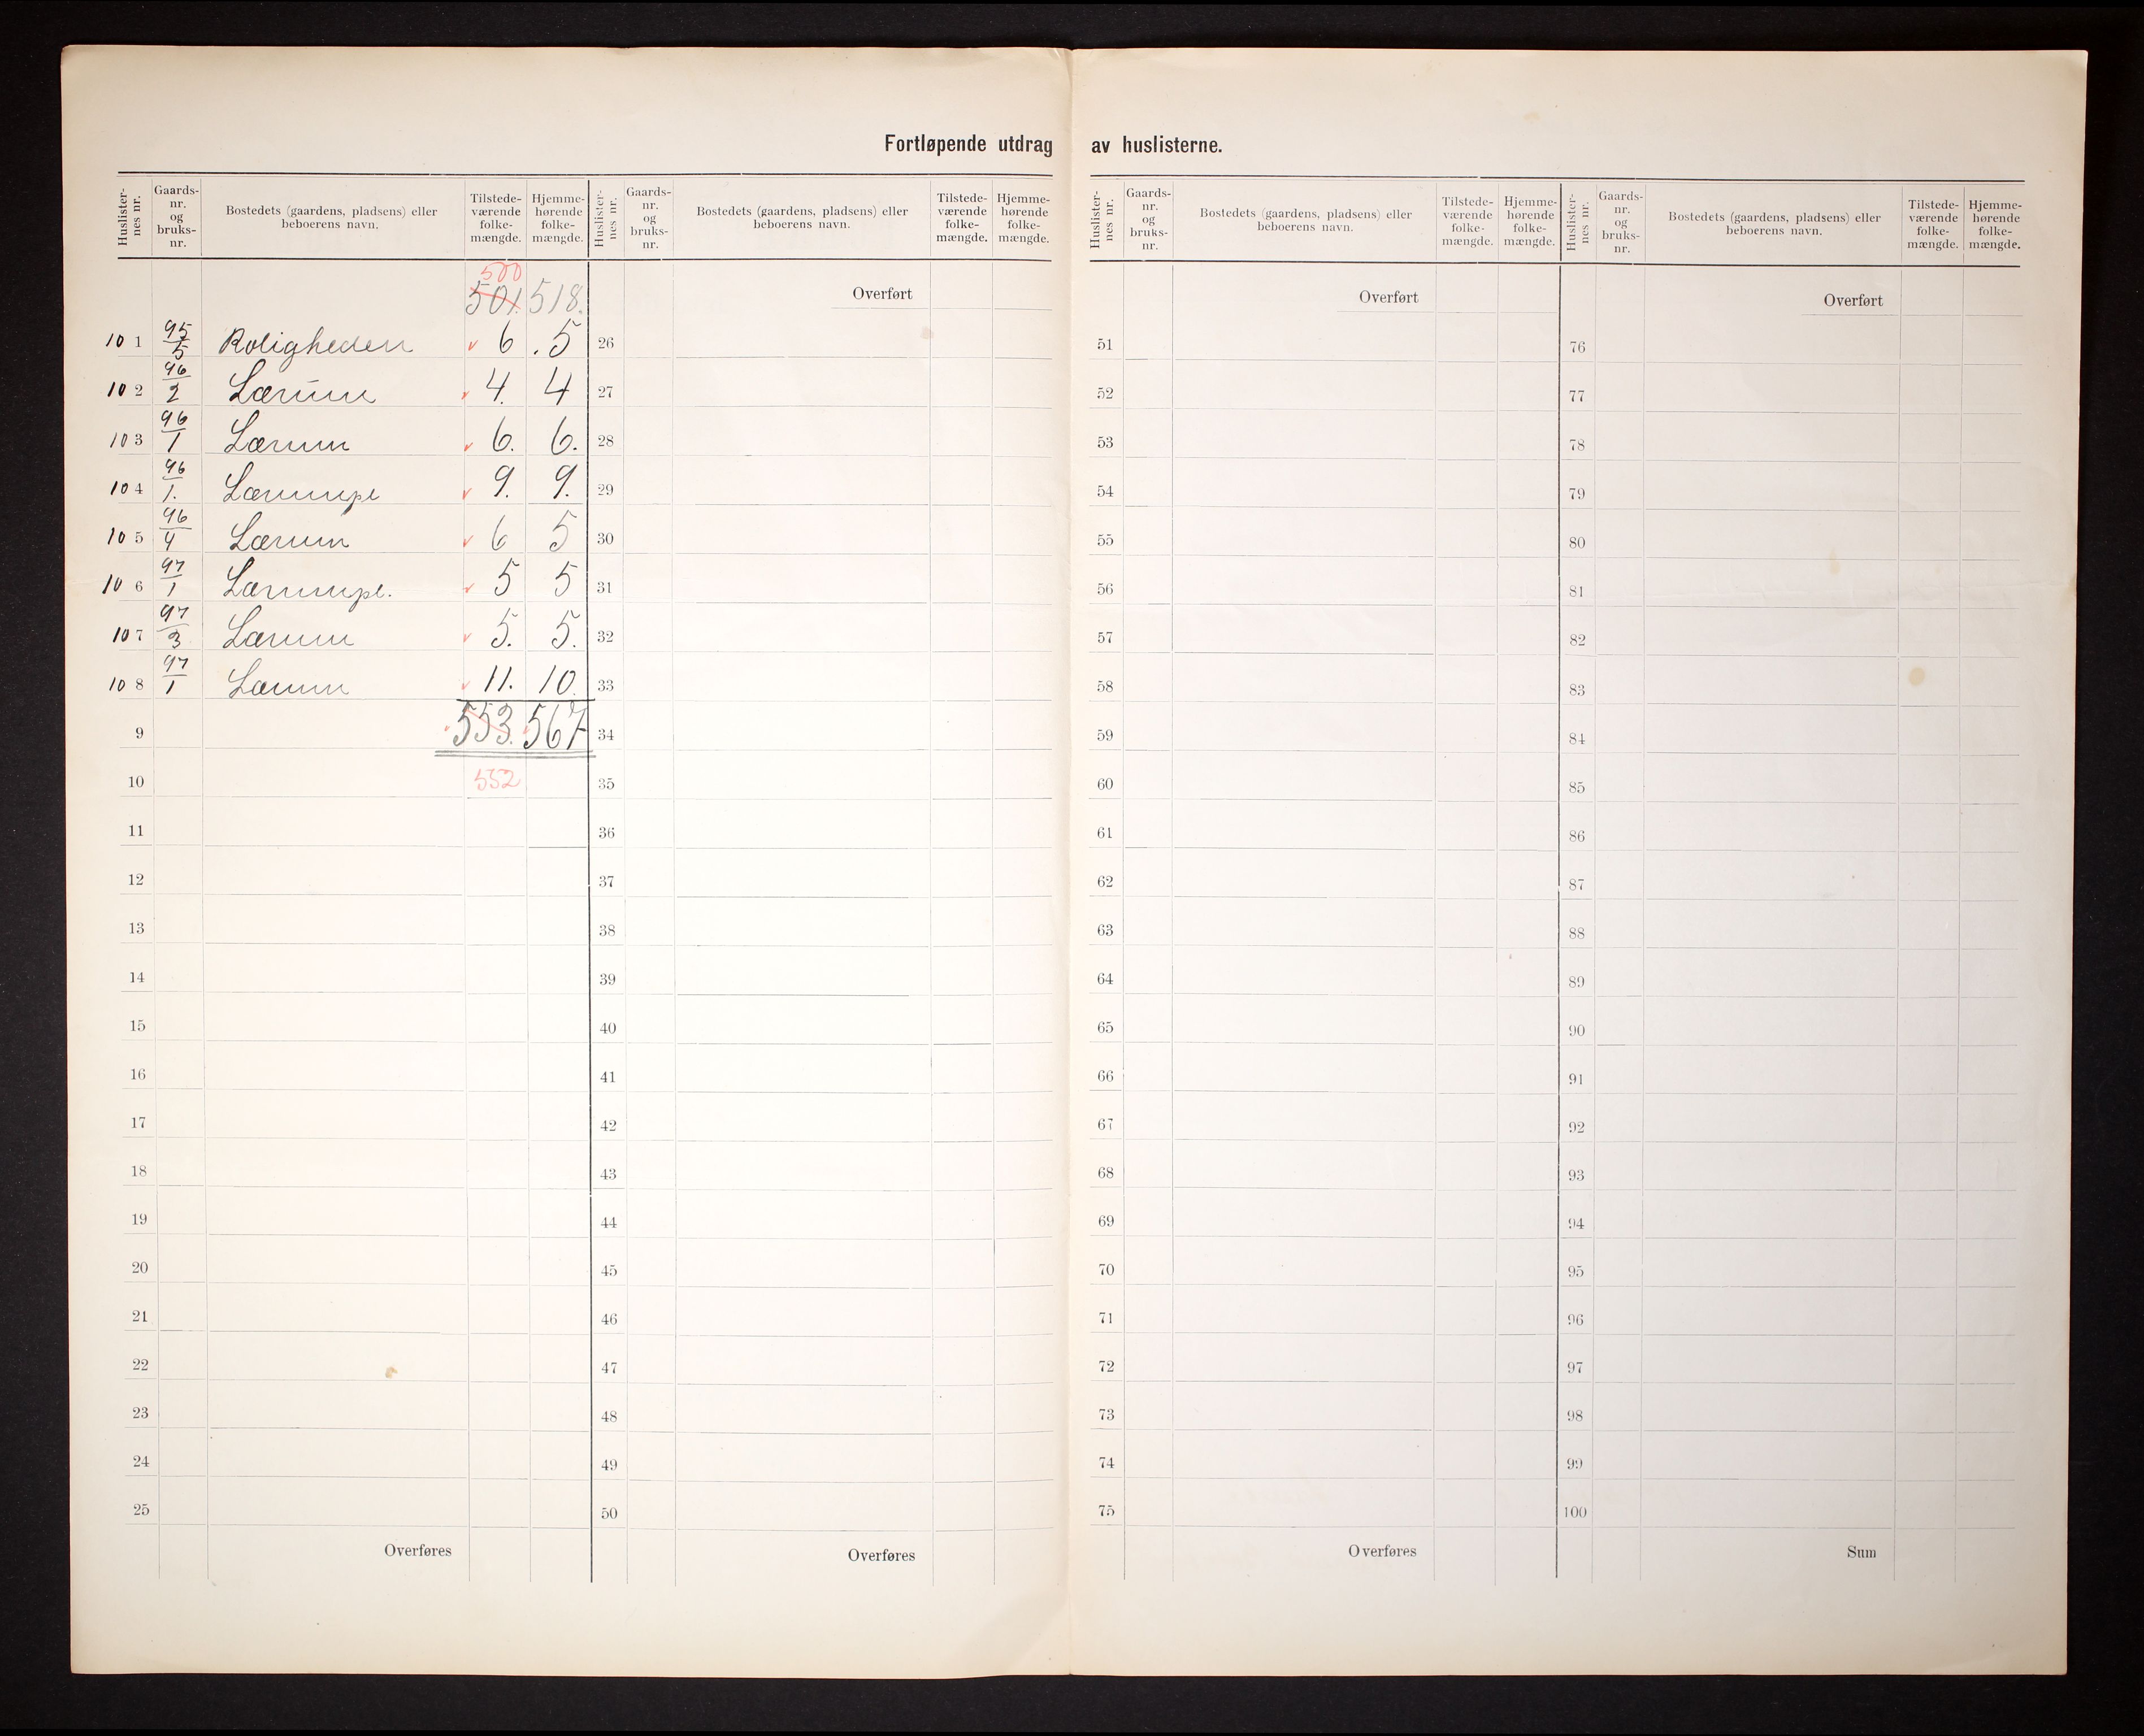 Fortløpende utdrag av huslisterne.
Huslister-nes nr. Gaards-nr. og bruks-nr. Bostedets (gaardens, pladsens) eller beboerens navn. Tilstede-værende folke-mængde. Hjemme-hørende folke-mængde.
500
501. 518.
10 1 95/5 Roligheden v 6 . 5
10 2 96/2 Lærum v 4. 4
10 3 96/1 Lærum v 6. 6.
10 4 96/1. Lærumpl v 9. 9.
10 5 96/4 Lærum v 6 5
10 6 97/1 Lærumpl. v 5 5
10 7 97/3 Lærum v 5. 5.
10 8 97/1 Lærum v 11. 10.
9 553. 567
10 552
11
12
13
14
15
16
17
18
19
20
21
22
23
24
25
Overføres
Huslister-nes nr. Gaards-nr. og bruks-nr. Bostedets (gaardens, pladsens) eller beboerens navn. Tilstede-værende folke-mængde. Hjemme-hørende folke-mængde.
Overført
26
27
28
29
30
31
32
33
34
35
36
37
38
39
40
41
42
43
44
45
46
47
48
49
50
Overføres
Huslister-nes nr. Gaards-nr. og bruks-nr. Bostedets (gaardens, pladsens) eller beboerens navn. Tilstede-værende folke-mængde. Hjemme-hørende folke-mængde.
Overført
51
52
53
54
55
56
57
58
59
60
61
62
63
64
65
66
67
68
69
70
71
72
73
74
75
Overføres
Huslister-nes nr. Gaards-nr. og bruks-nr. Bostedets (gaardens, pladsens) eller beboerens navn. Tilstede-værende folke-mængde. Hjemme-hørende folke-mængde.
Overført
76
77
78
79
80
81
82
83
84
85
86
87
88
89
90
91
92
93
94
95
96
97
98
99
100
Sum